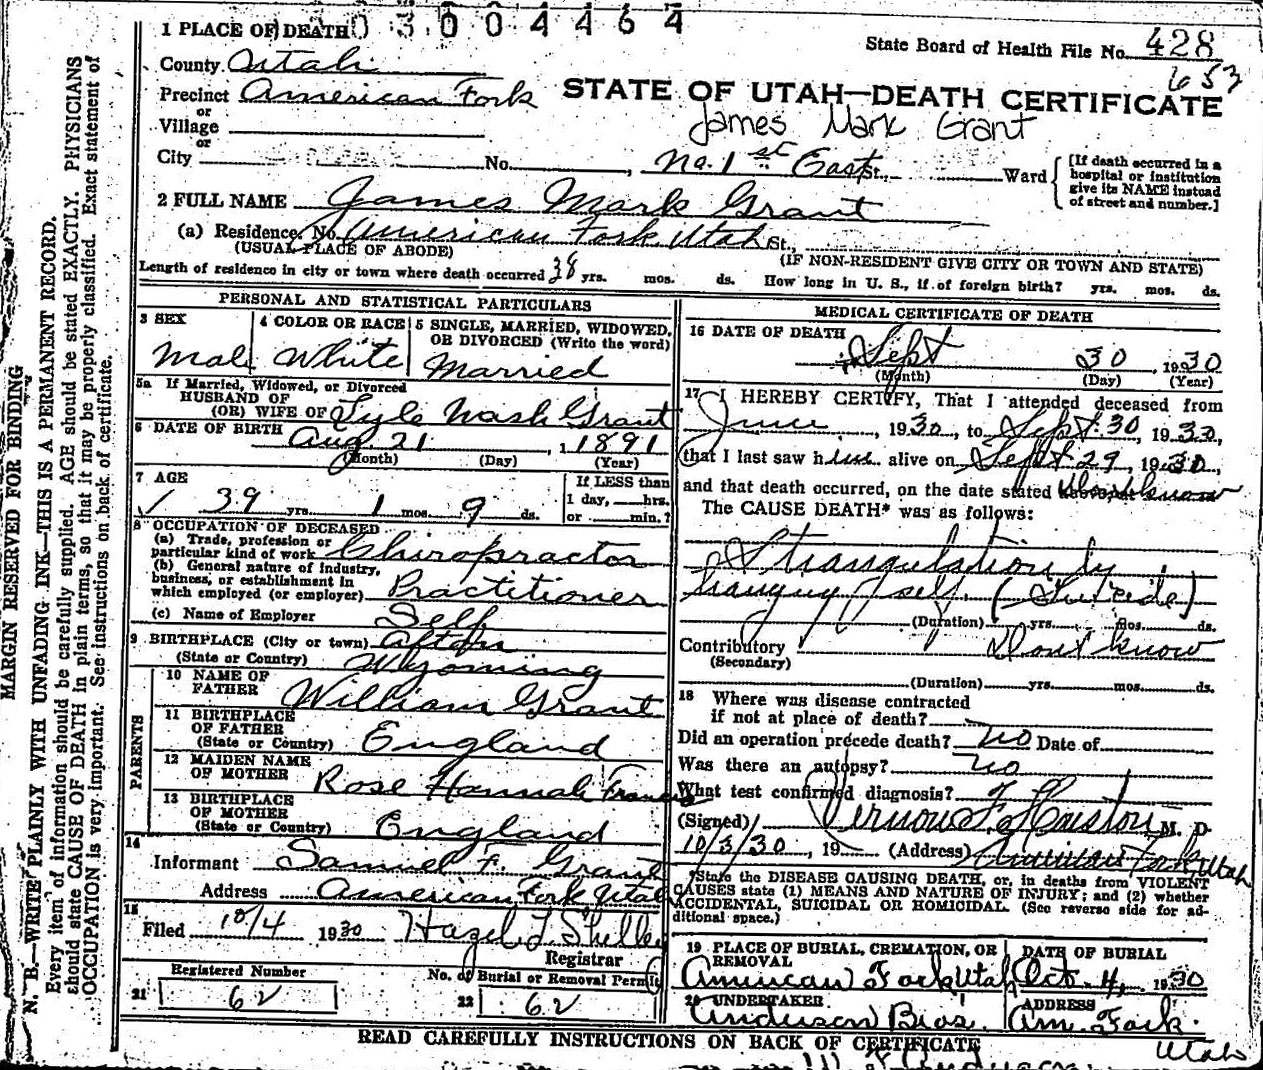 1 PLACE OF DEATH 0 3 0 0 4 4 6 4
State Board of Health File No. 428
653
County Utah
Precinct American Fork
STATE OF UTAH—DEATH CERTIFICATE
or
Village
James Mark Grant
or
City No. , No. 1st East St., Ward
[If death occurred in a hospital or institution give its NAME instead of street and number.]
2 FULL NAME James Mark Grant
(a) Residence. No. American Fork Utah St.,
(USUAL PLACE OF ABODE) (IF NON-RESIDENT GIVE CITY OR TOWN AND STATE)
Length of residence in city or town where death occurred 38 yrs. mos. ds. How long in U. S., if of foreign birth? yrs. mos. ds.
PERSONAL AND STATISTICAL PARTICULARS
3 SEX
Male
4 COLOR OR RACE
White
5 SINGLE, MARRIED, WIDOWED, OR DIVORCED (Write the word)
Married
5a If Married, Widowed, or Divorced
HUSBAND OF
(OR) WIFE OF Lyle Nash Grant
6 DATE OF BIRTH Aug 21, 1891
(Month) (Day) (Year)
7 AGE
39 yrs. 1 mos. 9 ds.
If LESS than
1 day, hrs.
or min.?
8 OCCUPATION OF DECEASED
(a) Trade, profession or
particular kind of work Chiropractor
(b) General nature of industry,
business, or establishment in
which employed (or employer) Practitioner
(c) Name of Employer Self
9 BIRTHPLACE (City or town) Afton
(State or Country) Wyoming
PARENTS
10 NAME OF
FATHER William Grant
11 BIRTHPLACE
OF FATHER
(State or Country) England
12 MAIDEN NAME
OF MOTHER Rose Hannah Francis
13 BIRTHPLACE
OF MOTHER
(State or Country) England
14
Informant Samuel F. Grant
Address American Fork Utah
15
Filed 10/4 1930 Hazel L Shelley
Registrar
Registered Number
21 62
No. of Burial or Removal Permit
22 62
MEDICAL CERTIFICATE OF DEATH
16 DATE OF DEATH
Sept 30, 1930
(Month) (Day) (Year)
17 I HEREBY CERTIFY, That I attended deceased from
June, 1930, to Sept. 30 1930,
that I last saw him alive on Sept 29, 1930,
and that death occurred, on the date stated Dont know
The CAUSE DEATH* was as follows:
Strangulation by
hanging self. (Suicide)
(Duration) yrs. mos. ds.
Contributory Dont know
(Secondary)
(Duration) yrs. mos. ds.
18 Where was disease contracted
if not at place of death?
Did an operation precede death? no Date of
Was there an autopsy? no
What test confirmed diagnosis?
(Signed) Vernon F. Houston M. D.
10/3/30, 19 (Address) American Fork, Utah
*State the DISEASE CAUSING DEATH, or, in deaths from VIOLENT
CAUSES state (1) MEANS AND NATURE OF INJURY; and (2) whether
ACCIDENTAL, SUICIDAL OR HOMICIDAL. (See reverse side for ad-
ditional space.)
19 PLACE OF BURIAL, CREMATION, OR
REMOVAL
American Fork Utah
DATE OF BURIAL
Oct. 4, 1930
20 UNDERTAKER
Anderson Bros.
ADDRESS
Am. Fork.
Utah
READ CAREFULLY INSTRUCTIONS ON BACK OF CERTIFICATE
MARGIN RESERVED FOR BINDING
N. B.—WRITE PLAINLY WITH UNFADING INK—THIS IS A PERMANENT RECORD.
Every item of information should be carefully supplied. AGE should be stated EXACTLY. PHYSICIANS
should state CAUSE OF DEATH in plain terms, so that it may be properly classified. Exact statement of
OCCUPATION is very important. See instructions on back of certificate.